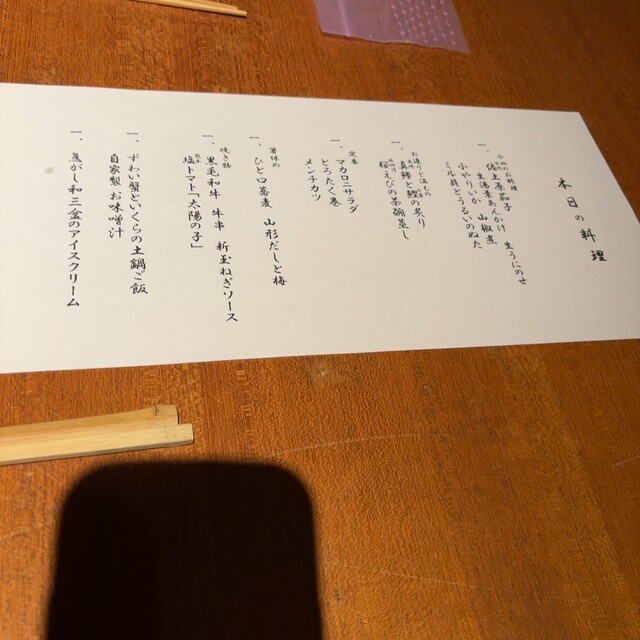 本日の料理
一、
佐土原茄子 生うにのせ
生海苔あんかけ 山椒煮
小やりいか
ミル貝とうるいのぬた
一、
お造りと
真鯵と鰹の炙り
桜えびの茶碗蒸し
一、
定番
マカロニサラダ
とろたく巻
メンチカツ
一、
箸休め
ひとつ蕎麦 山形だしと梅
一、
焼き物
黒毛和牛 牛串 新玉ねぎソース
塩トマト「太陽の子」
一、
ずわい蟹といくらの土鍋ご飯
自家製 お味噌汁
一、
焦がし和三盆のアイスクリーム